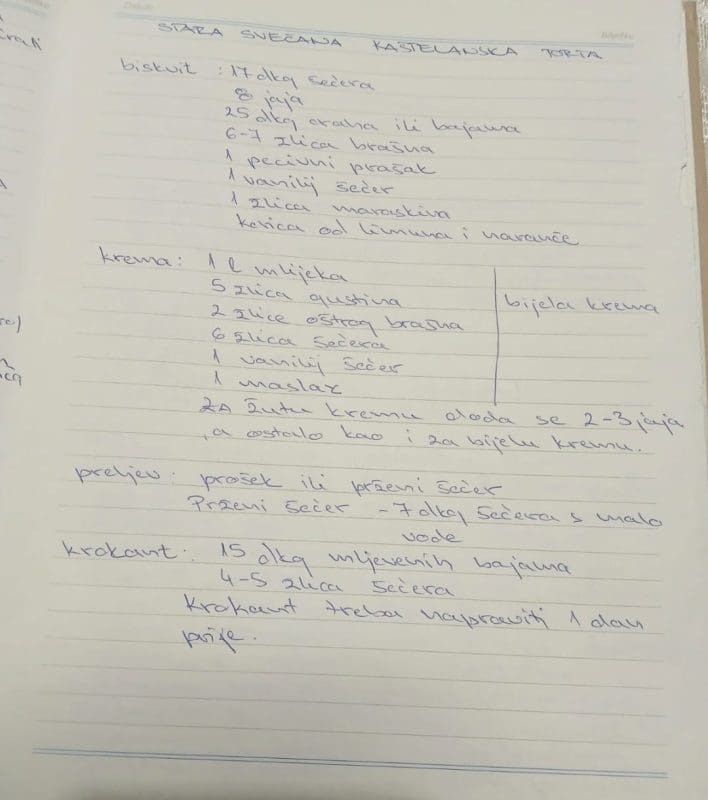 STARA SVEČANA KAŠTELANSKA TORTA
biskvit : 17 dkg šećera
8 jaja
25 dkg oraha ili bajama
6-7 žlica brašna
1 pecivni prašak
1 vanilij šećer
1 žlica maraskina
korica od limuna i naranče
krema: 1 l mlijeka
5 žlica gustina
bijela krema
2 žlice oštrog brašna
6 žlica šećera
1 vanilij šećer
1 maslax
ZA žutu kremu doda se 2-3 jaja
, a ostalo kao i za bijelu kremu.
preljev: prošek ili prženi šećer
Prženi šećer - 7 dkg šećera s malo
vode
krokant: 15 dkg mljevenih bajama
4-5 žlica šećera
Krokant treba napraviti 1 dan
prije.